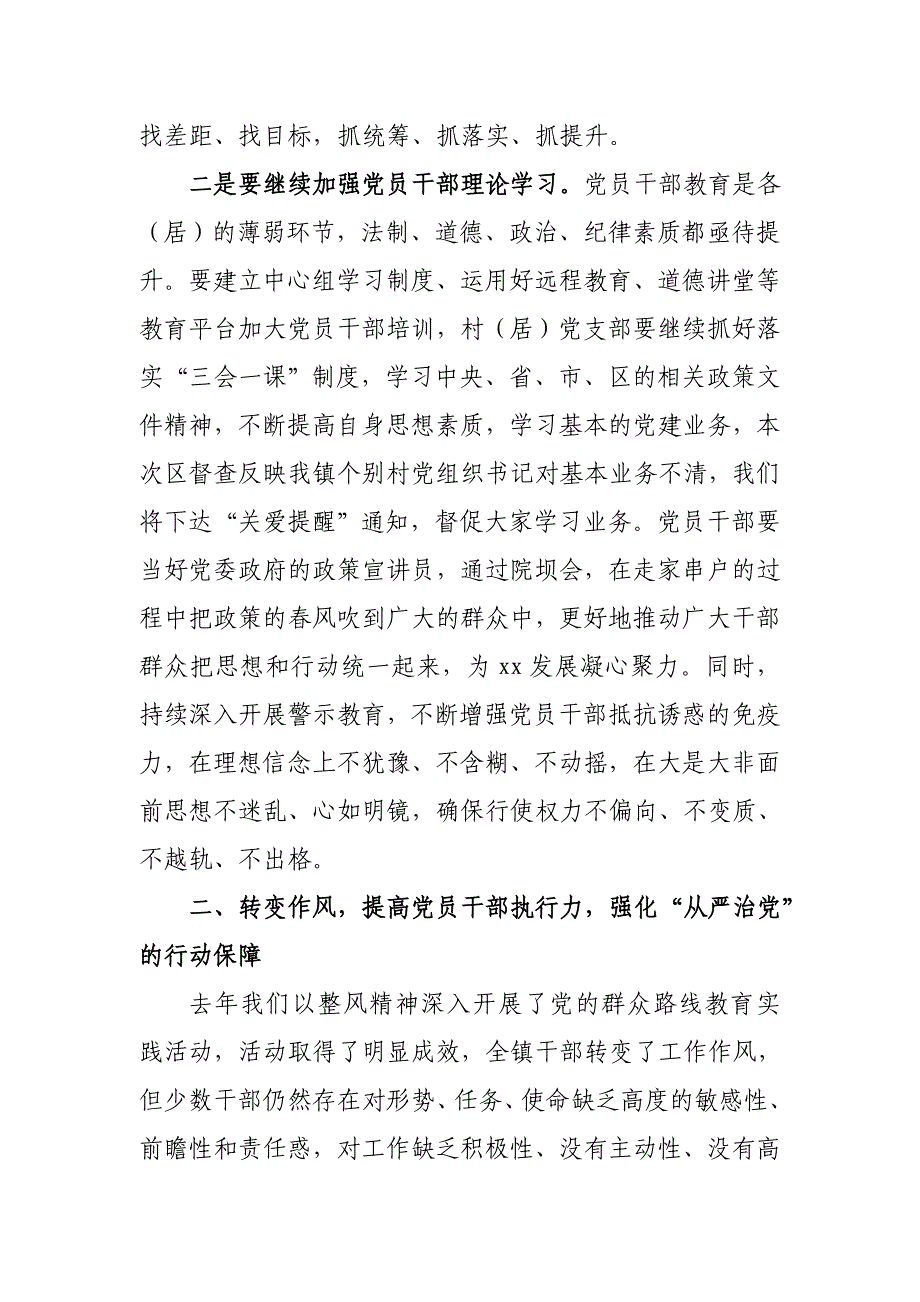 找差距、找目标，抓统筹、抓落实、抓提升。
二是要继续加强党员干部理论学习。党员干部教育是各
（居）的薄弱环节，法制、道德、政治、纪律素质都亟待提
升。要建立中心组学习制度、运用好远程教育、道德讲堂等
教育平台加大党员干部培训，村（居）党支部要继续抓好落
实“三会一课”制度，学习中央、省、市、区的相关政策文
件精神，不断提高自身思想素质，学习基本的党建业务，本
次区督查反映我镇个别村党组织书记对基本业务不清，我们
将下达“关爱提醒”通知，督促大家学习业务。党员干部要
当好党委政府的政策宣讲员，通过院坝会，在走家串户的过
程中把政策的春风吹到广大的群众中，更好地推动广大干部
群众把思想和行动统一起来，为 xx 发展凝心聚力。同时，
持续深入开展警示教育，不断增强党员干部抵抗诱惑的免疫
力，在理想信念上不犹豫、不含糊、不动摇，在大是大非面
前思想不迷乱、心如明镜，确保行使权力不偏向、不变质、
不越轨、不出格。
二、转变作风，提高党员干部执行力，强化“从严治党”
的行动保障
去年我们以整风精神深入开展了党的群众路线教育实
践活动，活动取得了明显成效，全镇干部转变了工作作风，
但少数干部仍然存在对形势、任务、使命缺乏高度的敏感性、
前瞻性和责任惑，对工作缺乏积极性、没有主动性、没有高